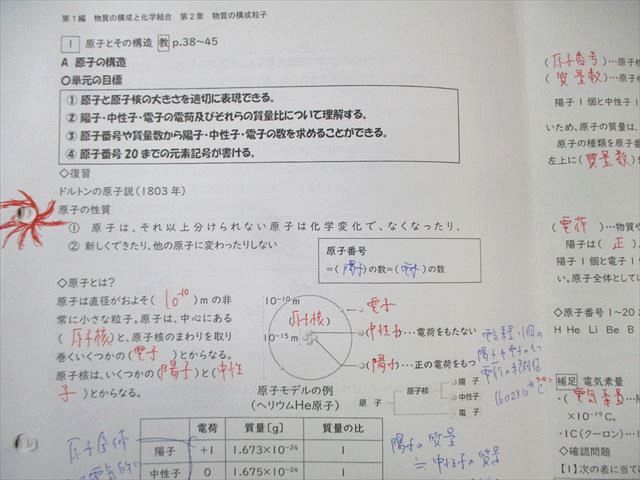 第1編 物質の構成と化学結合 第2章 物質の構成粒子
1 原子とその構造 教 p.38～45
A 原子の構造
〇単元の目標
① 原子と原子核の大きさを適切に表現できる。
② 陽子・中性子・電子の電荷及びそれらの質量比について理解する。
③ 原子番号や質量数から陽子・中性子・電子の数を求めることができる。
④ 原子番号20までの元素記号が書ける。
◇復習
ドルトンの原子説(1803年)
原子の性質
① 原子は、それ以上分けられない原子は化学変化で、なくなったり、
② 新しくできたり、他の原子に変わったりしない
原子番号
=(陽子)の数=(電子)の数
◇原子とは?
原子は直径がおよそ( 10⁻¹⁰ )mの非
常に小さな粒子。原子は、中心にある
( 原子核 )と、原子核のまわりを取り
巻くいくつかの( 電子 )とからなる。
原子核は、いくつかの( 陽子 )と( 中性
子 )とからなる。
10⁻¹⁰m
10⁻¹⁵m
(原子核)
電子
中性子…電荷をもたない
(陽子)…正の電荷をもつ
原子モデルの例
(ヘリウムHe原子)
原子
原子核
陽子
中性子
電子
電気素量:1個の
陽子や電子のもつ
電荷の絶対値
クーロン
原子全体
電荷 質量[g] 質量の比
陽子 +1 1.673×10⁻²⁴ 1
中性子 0 1.675×10⁻²⁴ 1
陽子の質量
≒中性子の質量
(原子番号)…原子核
( 質量数 )…原子
陽子1個と中性子1
いため、原子の質量は、
原子の種類を原子番
左上に( 質量数 )
( 電荷 )…物質や
陽子は( 正 )
陽子1個と電子1個
い。原子全体として
◇原子番号1～20
H He Li Be B
補足 電気素量
・( 電気素量 …陽
×10⁻¹⁹C。
・1C(クーロン)…1
◇確認問題
【1】次の表に当て